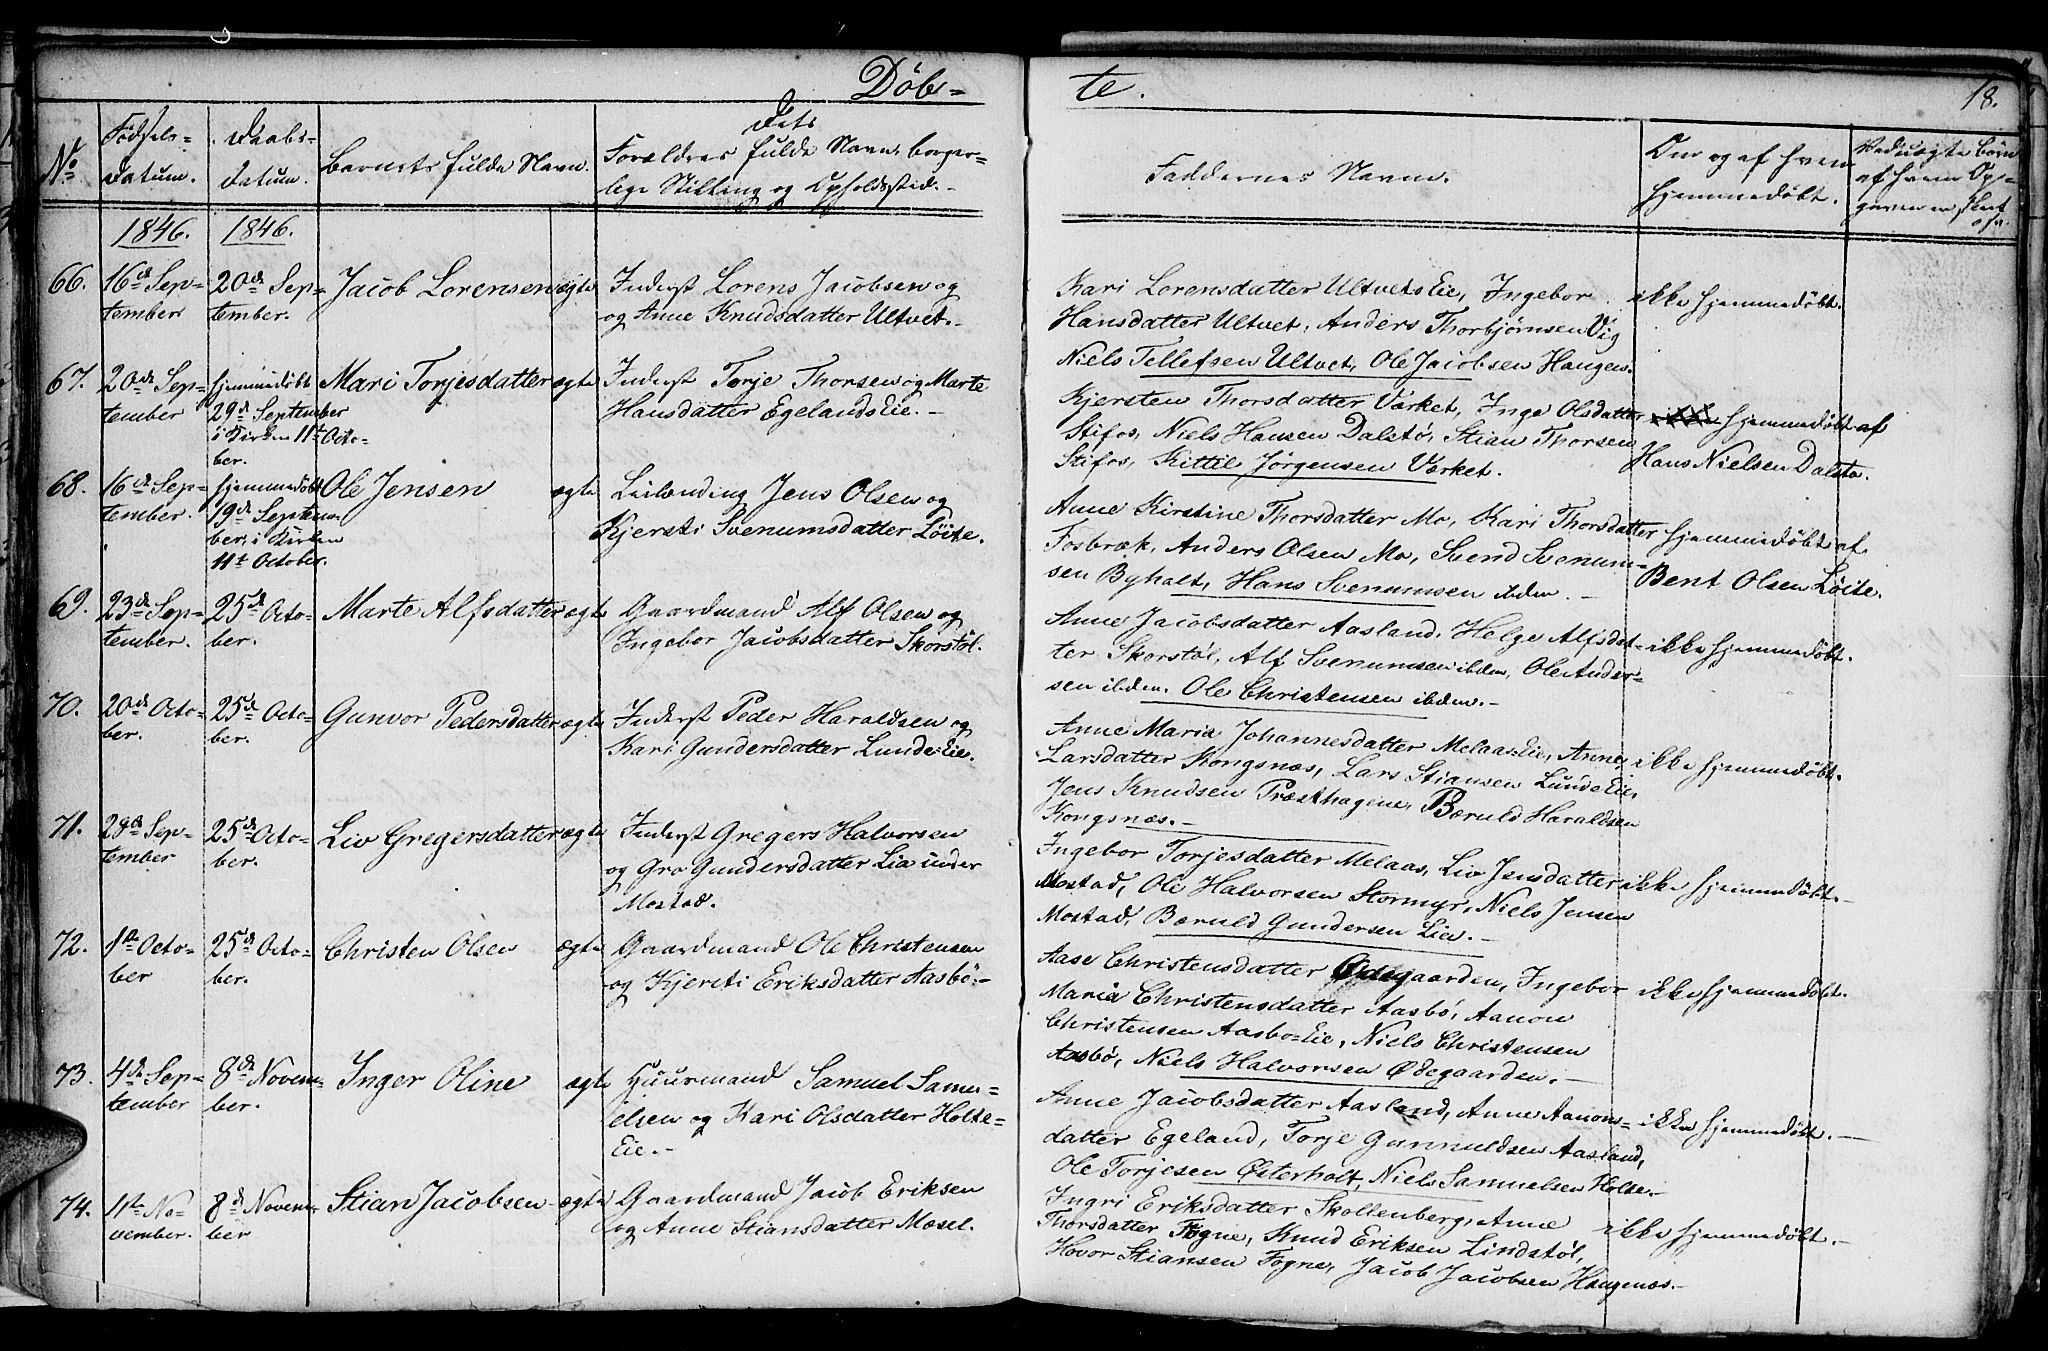 Døb=
te.
18.
No
Fødsels=
datum.
Daabs=
datum.
Barnets fulde Navn.
Dets
Forældres fulde Navn, borger=
lige Stilling og Opholdssted.-
Faddernes Navne.
Om og af hvem
hjemmedøbt.
Ved uægte Børn
af hvem Op=
gaven er
1846.
1846.
66.
16de Sep=
tember
20de Sep=
tember.
Jacob Lorensen
ægte
Inderst Lorens Jacobsen og
og Anne Knudsdatter Ultvet.-
Kari Lorensdatter UltvetsEie, Ingebor
Hansdatter Ultvet, Anders Thorbjørnsen Vig
Niels Tellefsen Ultvet, Ole Jacobsen Haugen.
ikke hjemmedøbt.
67.
20de Sep=
tember
hjemmedøbt
29de September
i Kirken 11te Octo=
ber.
Mari Torjesdatter
ægte
Inderst Torje Thorsen og Marte
Hansdatter EgelandsEie.-
Kjersten Thorsdatter Værket, Inge Olsdatter
Stifos, Niels Hansen Dalstø, Stian Thorsen
Stifos, Kittil Jørgensen Værket.
hjemmedøbt af
Hans Nielsen Dalstø.
68.
16de Sep=
tember.
hjemmedøbt
19de Septem=
ber, i Kirken
11te October.
Ole Jensen
ægte
Leilending Jens Olsen og
Kjersti Svenumsdatter Löite.
Anne Kirstine Thorsdatter Mo, Kari Thorsdatter
Fosbræk, Anders Olsen Mo, Svend Svenum=
sen Byholt, Hans Svenumsen ibden.-
hjemmedøbt af
Bent Olsen Löite.
69.
23de Sep=
tember.
25de Octo=
ber.
Marte Alfsdatter
ægte
Gaardmand Alf Olsen og
Ingebor Jacobsdatter Skorstøl.
Anne Jacobsdatter Aasland, Helge Alfsdat=
ter Skorstøl, Alf Svenumsen ibden, Ole Ander=
sen ibden. Ole Christensen ibden.-
ikke hjemmedøbt.
70.
20de Octo=
ber.
25de Octo=
ber.
Gunvor Pedersdatter
ægte
Inderst Peder Haraldsen og
Kari Gundersdatter LundeEie.
Anne Maria Johannesdatter MelaasEie, Anne
Larsdatter Kongsnæs, Lars Stiansen LundeEie,
Jens Knudsen Præsthagene, Bæruld Haraldsen
Kongsnæs.-
ikke hjemmedøbt.
71.
28de Sep=
tember
25de Octo=
ber.
Liv Gregersdatter
ægte
Inderst Gregers Halvorsen
og Gro Gundersdatter Lia under
Mostad.
Ingebor Torjesdatter Melaas, Liv Jensdatter
Mostad, Ole Halvorsen Stormyr, Niels Jensen
Mostad, Bæruld Gundersen Lia.-
ikke hjemmedøbt.-
72.
1ste Octo=
ber
25de Octo=
ber.
Christen Olsen
ægte
Gaardmand Ole Christensen
og Kjersti Eriksdatter Aasbö.-
Aase Christensdatter Ødegaarden, Ingebor
Maria Christensdatter Aasbö, Aanon
Christensen Aasbo=Eie, Niels Christensen
Aasbö, Niels Halvorsen Ødegaarden.-
ikke hjemmedøbt.
73.
4de Sep=
tember
8de Novem=
ber.
Inger Oline
ægte
Huusmand Samuel Samu=
elsen og Kari Olsdatter Holte=
Eie.-
Anne Jacobsdatter Aasland, Anne Aanons=
datter Egeland, Torje Gunnuldsen Aasland,
Ole Torjesen Østerholt, Niels Samuelsen Holte.-
ikke hjemmedøbt.-
74.
11te No=
vember.
8de Novem=
ber
Stian Jacobsen
ægte
Gaardmand Jacob Eriksen
og Anne Stiansdatter Mæsel.
Ingri Eriksdatter Skollenberg, Anne
Thorsdatter Fogne, Knud Eriksen Lindstøl,
Hovor Stiansen Fogne, Jacob Jacobsen Haugenæs.-
ikke hjemmedøbt.-